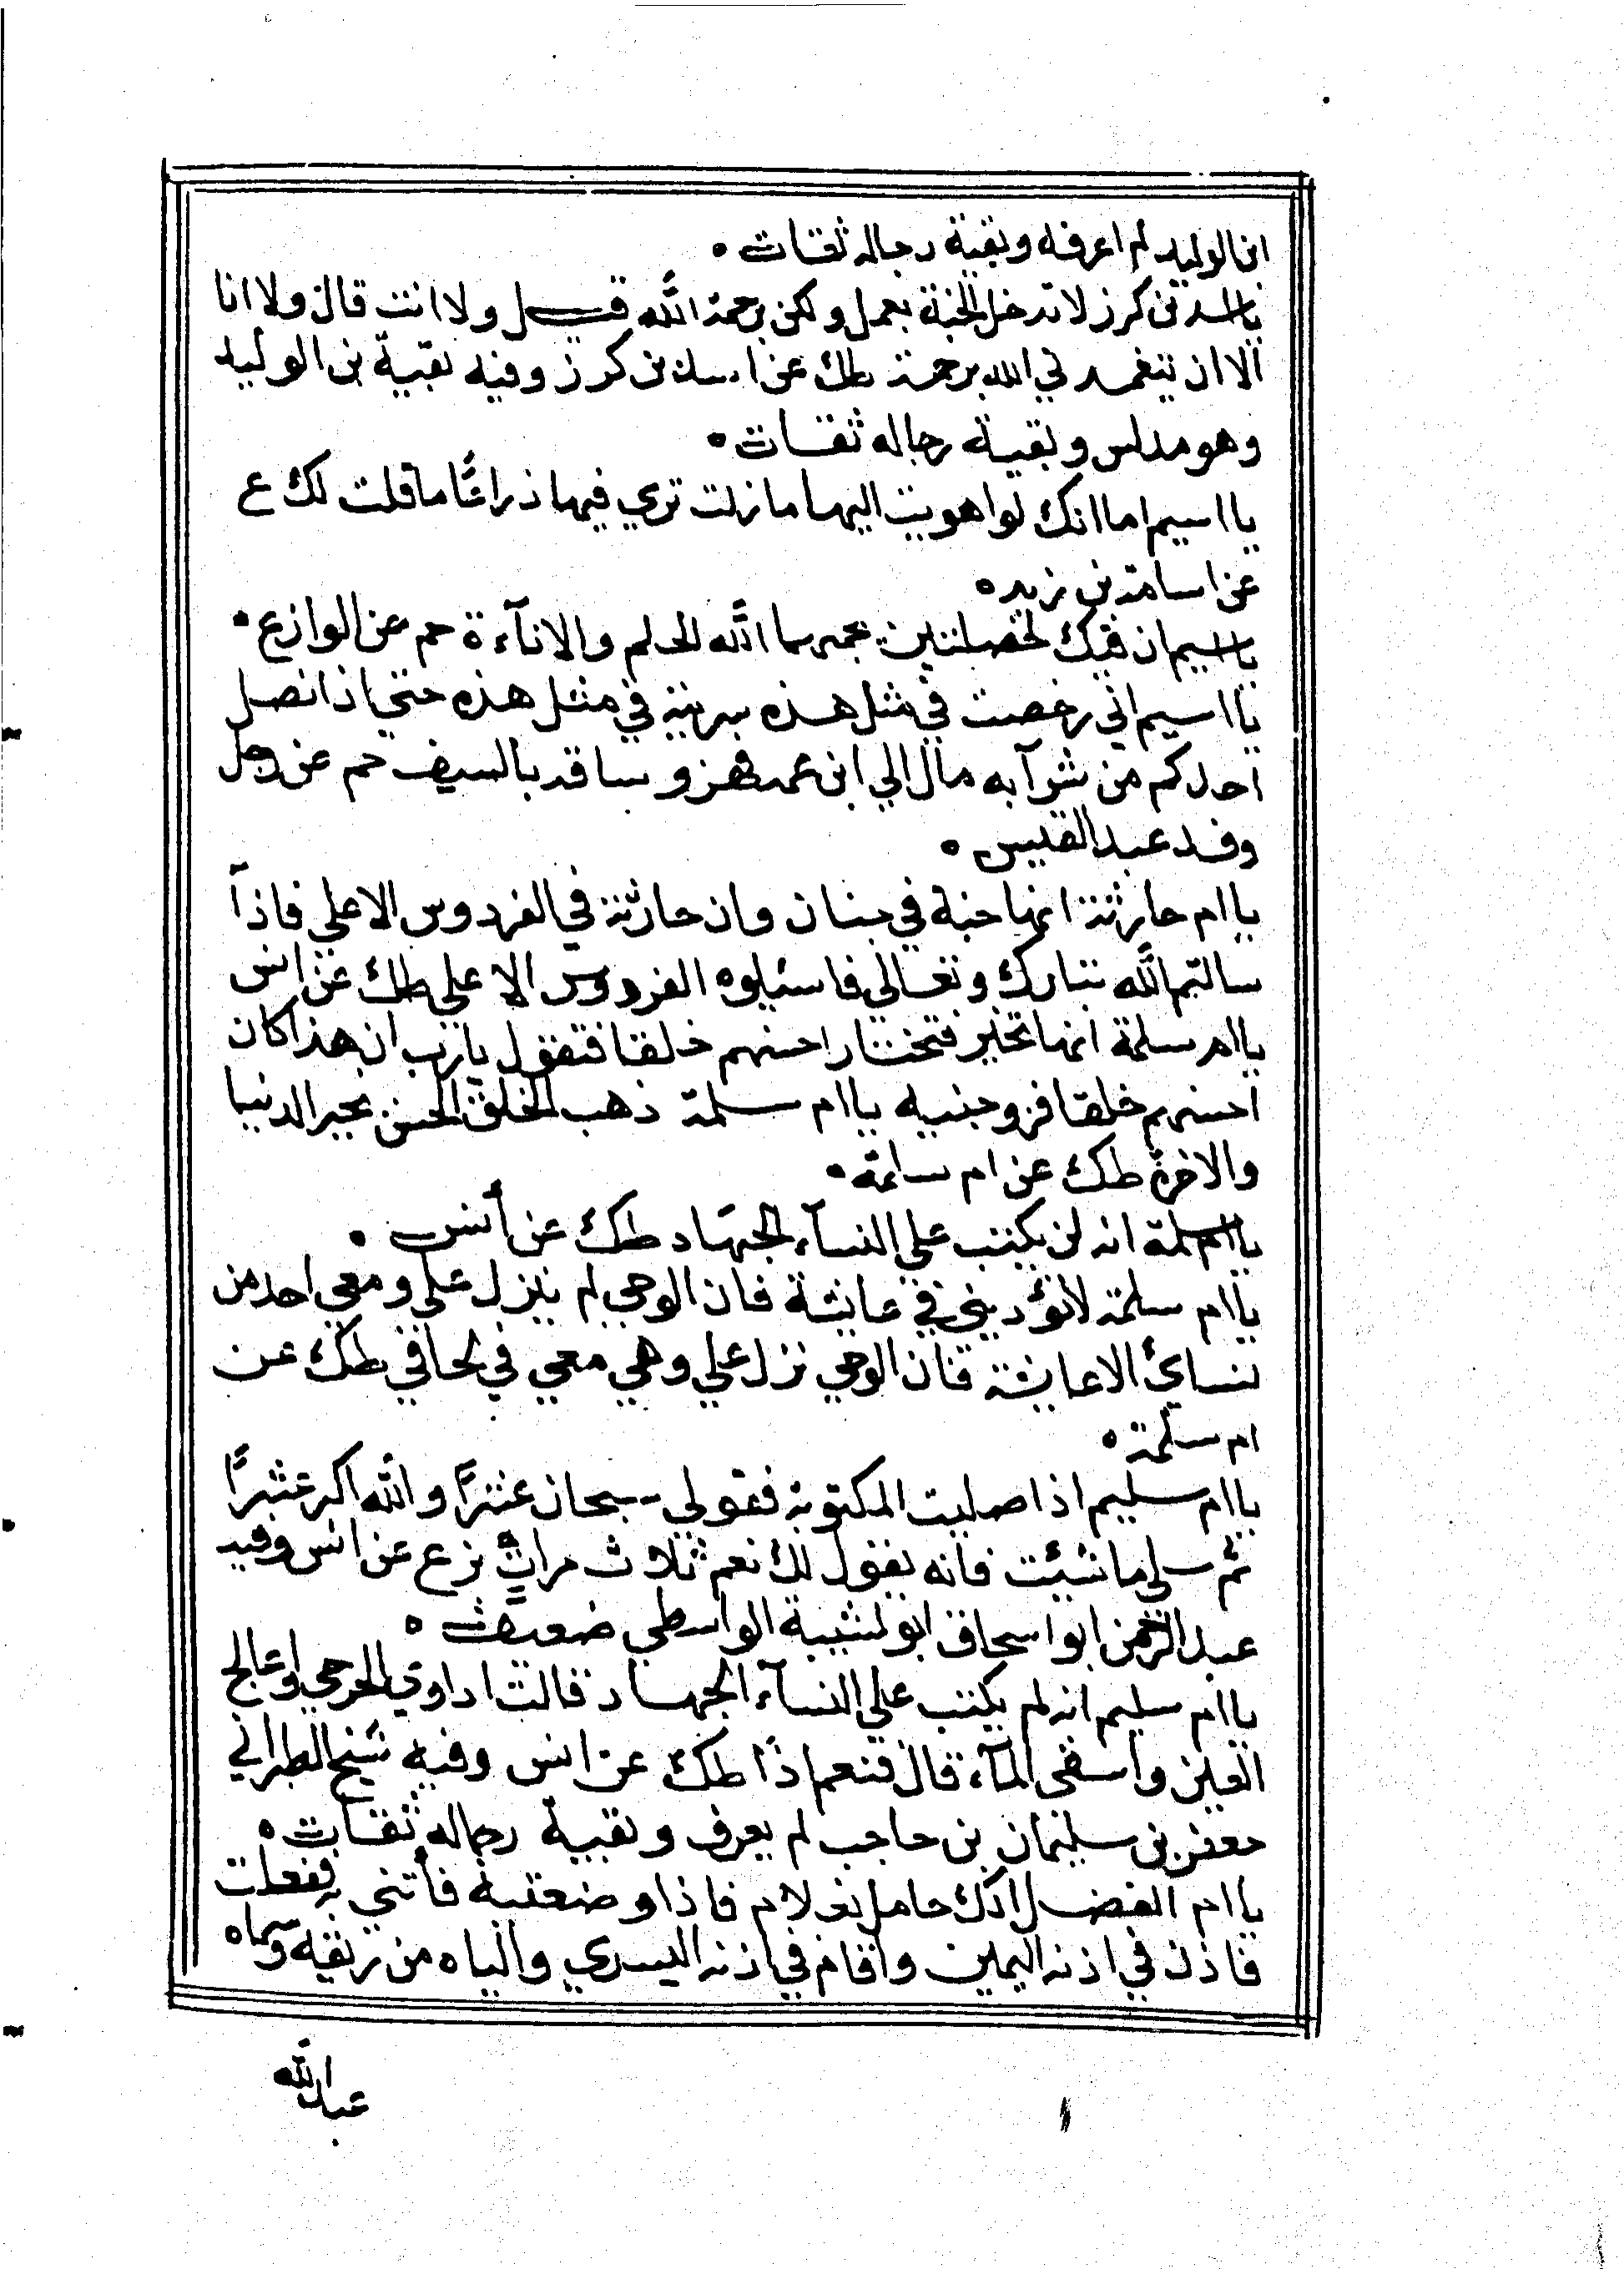 ابن الوليد لم اعرفه وبقية رجاله ثقات •
يا اسد بن كرز لا تدخل الجنة بعمل ولكن برحمة الله قيل ولا انت قال ولا انا
الا ان يتغمدني الله برحمة طك عن اسد بن كرز وفيه بقية بن الوليد
وهو مدلس وبقية رجاله ثقات •
يا اسيم اما انك لو اهويت اليها ما زلت تري فيها ذراعًا ما قلت لك ع
عن اسامة بن زيد •
يا اسيم ان فيك لخصلتين يحبهما الله الحلم والاناءة حم عن الوازع •
يا اسيم اني رخصت في مثل هذه شربته في مثل هذه حتي اذا نصل
احدكم من شرابه مال الي ابن عمه فهزر ساقه بالسيف حم عن رجل
وفد عبد القيس •
يا ام حارثة انها جنة في جنان وان حارثة في الفردوس الاعلي فاذا
سالتم الله تبارك وتعالي فاسئلوه الفردوس الاعلي طك عن انس
يا ام سلمة انها تخير فتختار احسنهم خلقا فتقول يا رب ان هذا كان
احسنهم خلقا فزوجنيه يا ام سلمة ذهب الخلق الحسن بخير الدنيا
والاخرة طك عن ام سلمة •
يا ام سلمة انه لن يكتب علي النساء الجهاد طك عن أنس •
يا ام سلمة لا تؤديني في عايشة فان الوحي لم ينزل علي ومعي احد من
نسائ الا عايشة فان الوحي نزل علي وهي معي في لحافي طك عن
ام سلمة •
يا ام سليم اذا صليت المكتوبة فقولي سبحان عشرًا والله اكبر عشرًا
ثم سلي ما شئت فانه يقول لك نعم ثلاث مرات بز ع عن انس وفيه
عبد الرحمن ابو اسحاق ابو شيبة الواسطي ضعيف •
يا ام سليم انه لم يكتب علي النساء الجهاد قالت اداوي الجرحي واعالج
العين واسقي الماء قال فنعم اذًا طك عن انس وفيه شيخ الطبراني
جعفر بن سليمان بن حاجب لم يعرف وبقية رجاله ثقات •
يا ام الفضل انك حامل بغلام فاذا وضعتيه فأتني به ففعلت
فاذن في اذنه اليمين واقام في اذنه اليسري والباه من ريقه وسماه
عبد الله